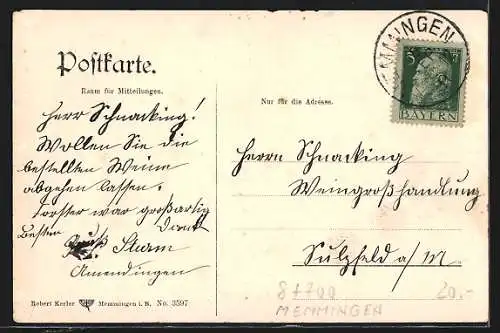 MEMMINGEN
Postkarte.
Raum für Mitteilungen.
Nur für die Adresse.
5
BAYERN
Herr Schnacking!
Wollen Sie die
bestellten Weine
abgehen lassen.
war großartig
Besten Dank
Gruß Sturm
Amendingen
Herrn Schnacking
Weingroßhandlung
Sulzfeld a/M
8+700
MEMMINGEN
20.-
Robert Kesler Memmingen i. B. No. 3597